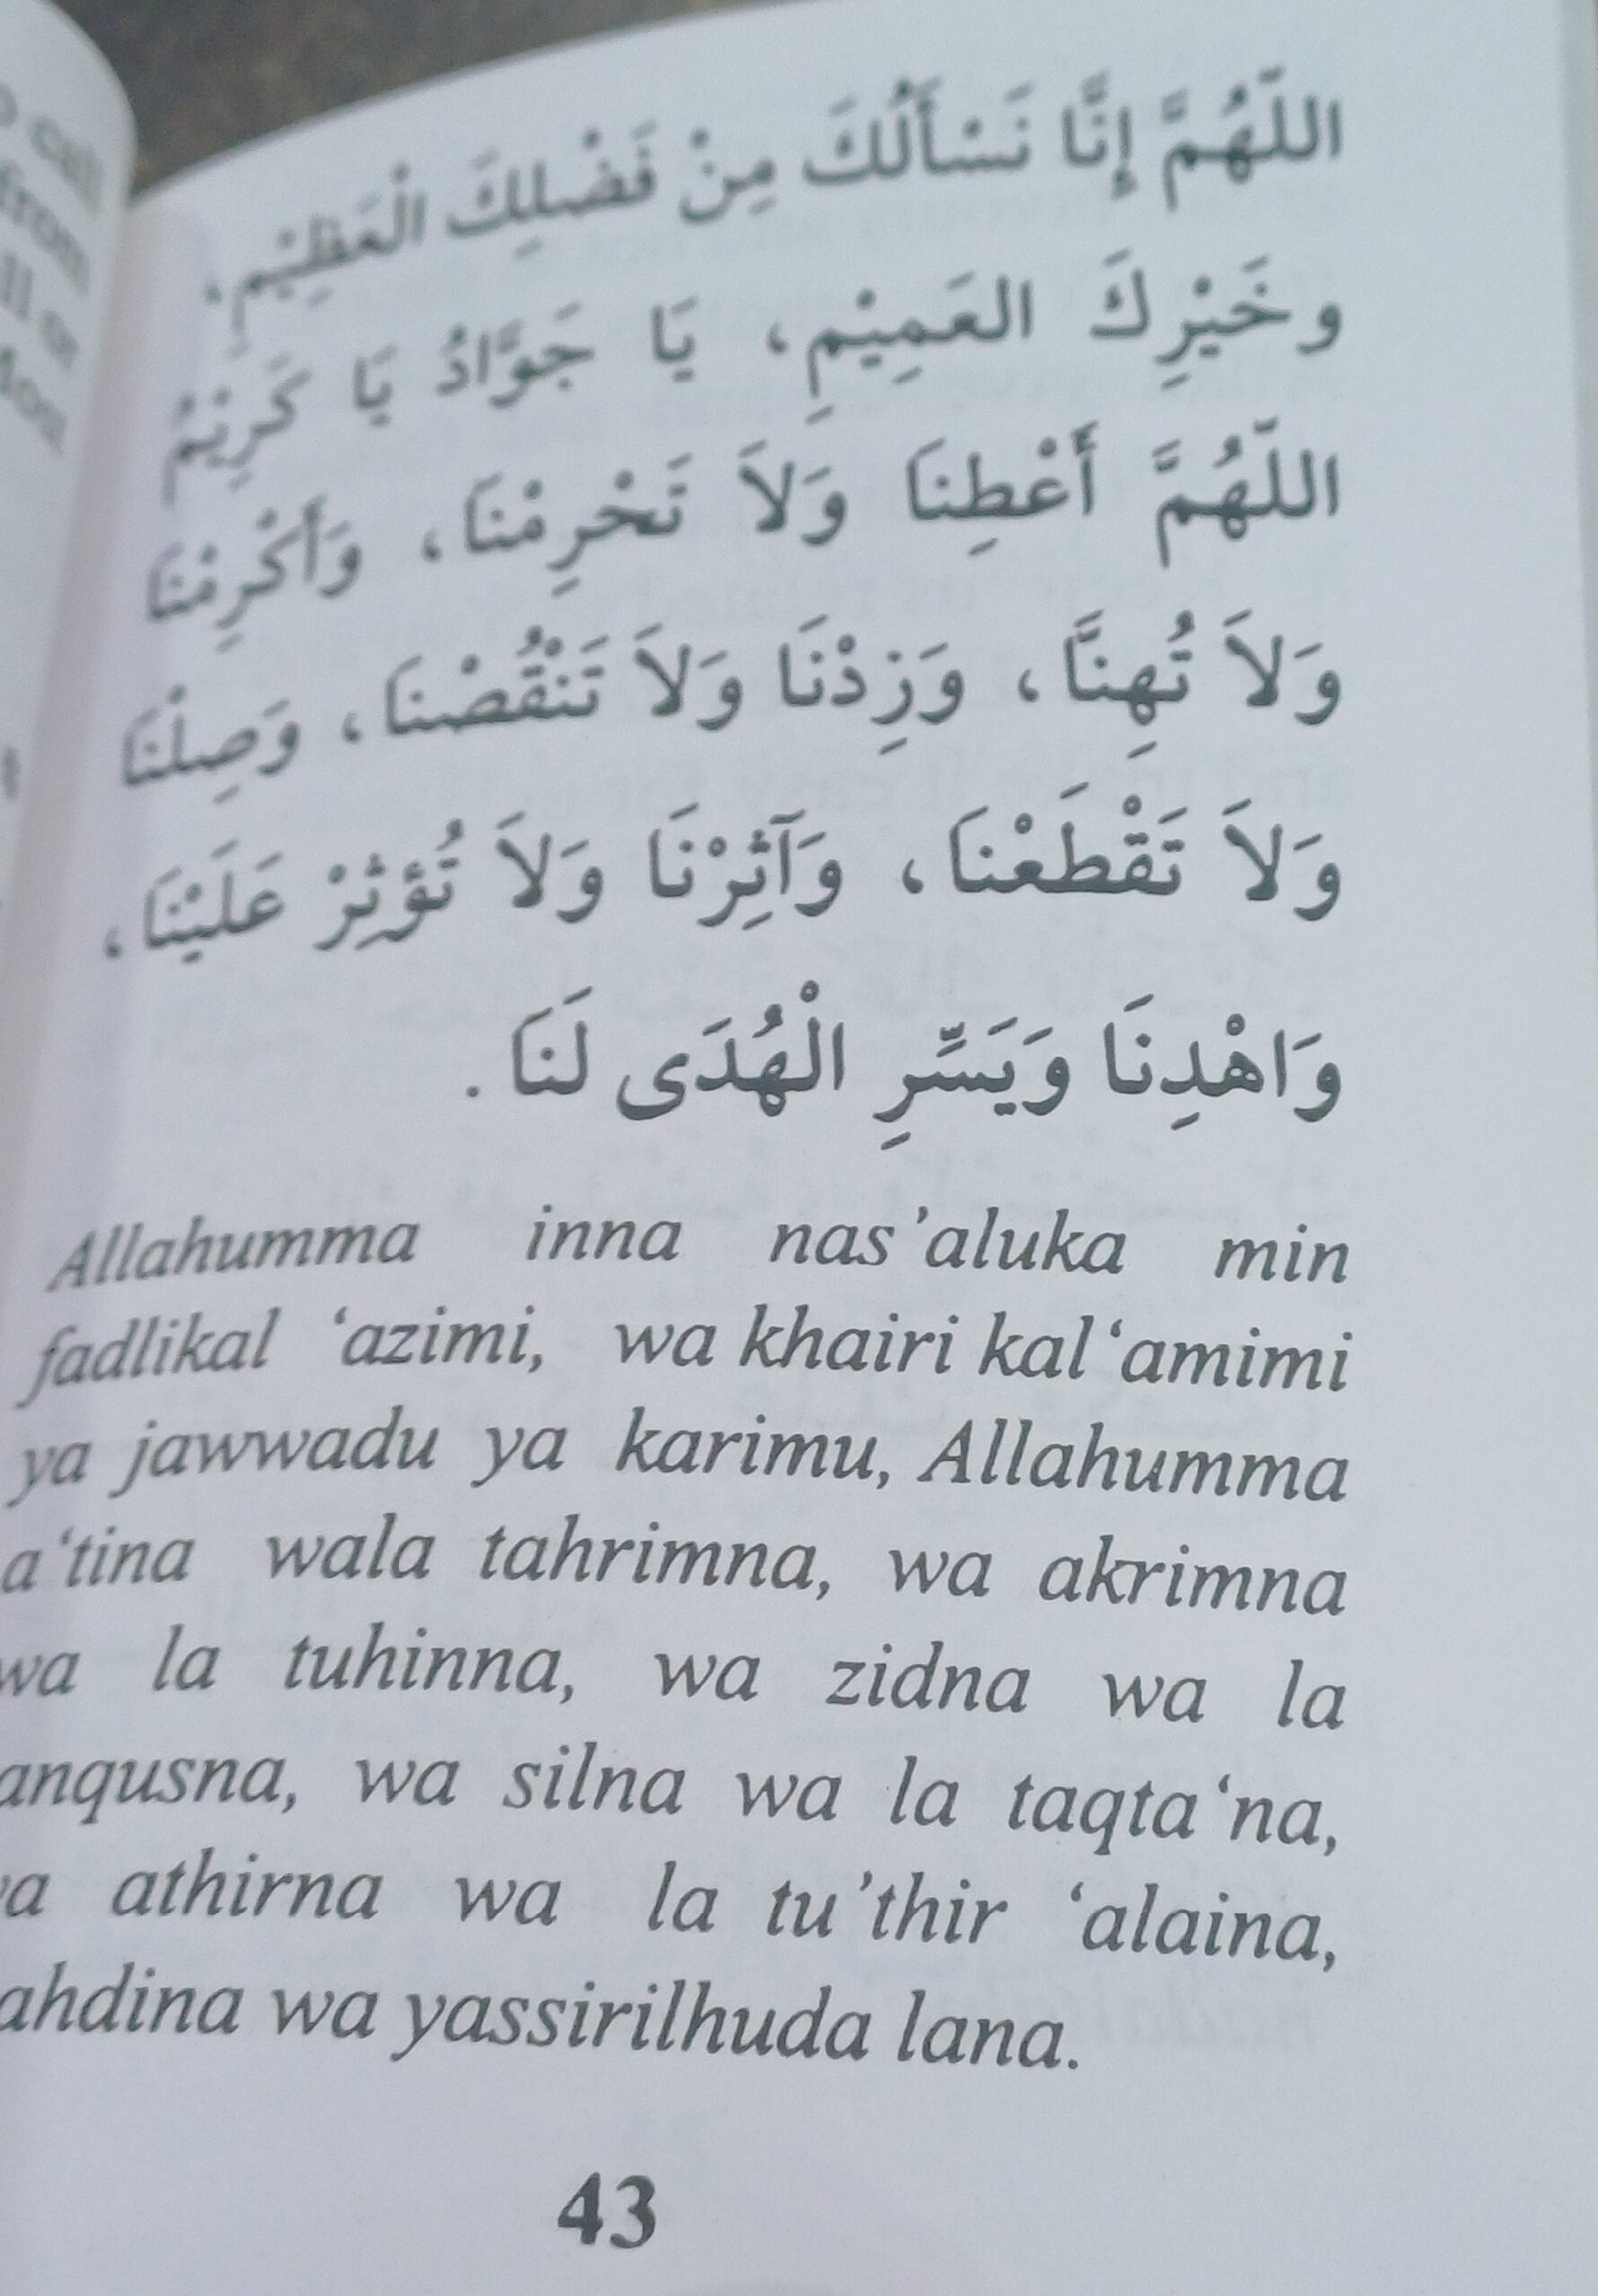 اللّهُمَّ إِنَّا نَسْأَلُكَ مِنْ فَضْلِكَ الْعَظِيْمِ،
وخَيْرِكَ العَمِيْمِ، يَا جَوَّادُ يَا كَرِيْمُ
اللّهُمَّ أَعْطِنَا وَلاَ تَحْرِمْنَا، وَأَكْرِمْنَا
وَلاَ تُهِنَّا، وَزِدْنَا وَلاَ تَنْقُصْنَا، وَصِلْنَا
وَلاَ تَقْطَعْنَا، وَآثِرْنَا وَلاَ تُؤثِرْ عَلَيْنَا،
وَاهْدِنَا وَيَسِّرِ الْهُدَى لَنَا .
Allahumma inna nas’aluka min
fadlikal ‘azimi, wa khairi kal‘amimi
ya jawwadu ya karimu, Allahumma
a‘tina wala tahrimna, wa akrimna
wa la tuhinna, wa zidna wa la
anqusna, wa silna wa la taqta‘na,
a athirna wa la tu’thir ‘alaina,
ahdina wa yassirilhuda lana.
43